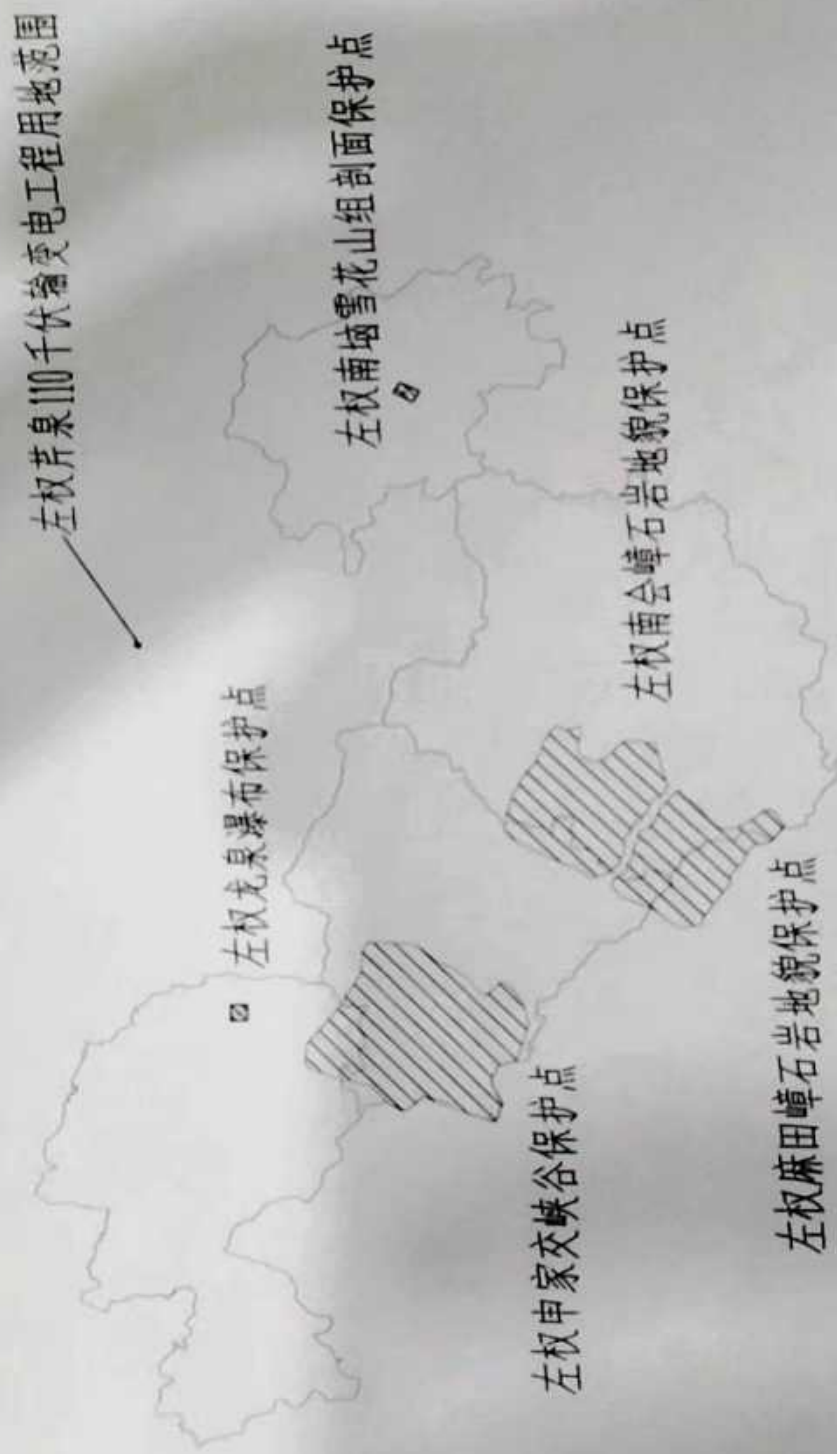 左权芹泉110千伏输变电工程用地范围
左权南垴雪花山组剖面保护点
左权龙泉瀑布保护点
左权南会嶂石岩地貌保护点
左权申家交峡谷保护点
左权麻田嶂石岩地貌保护点